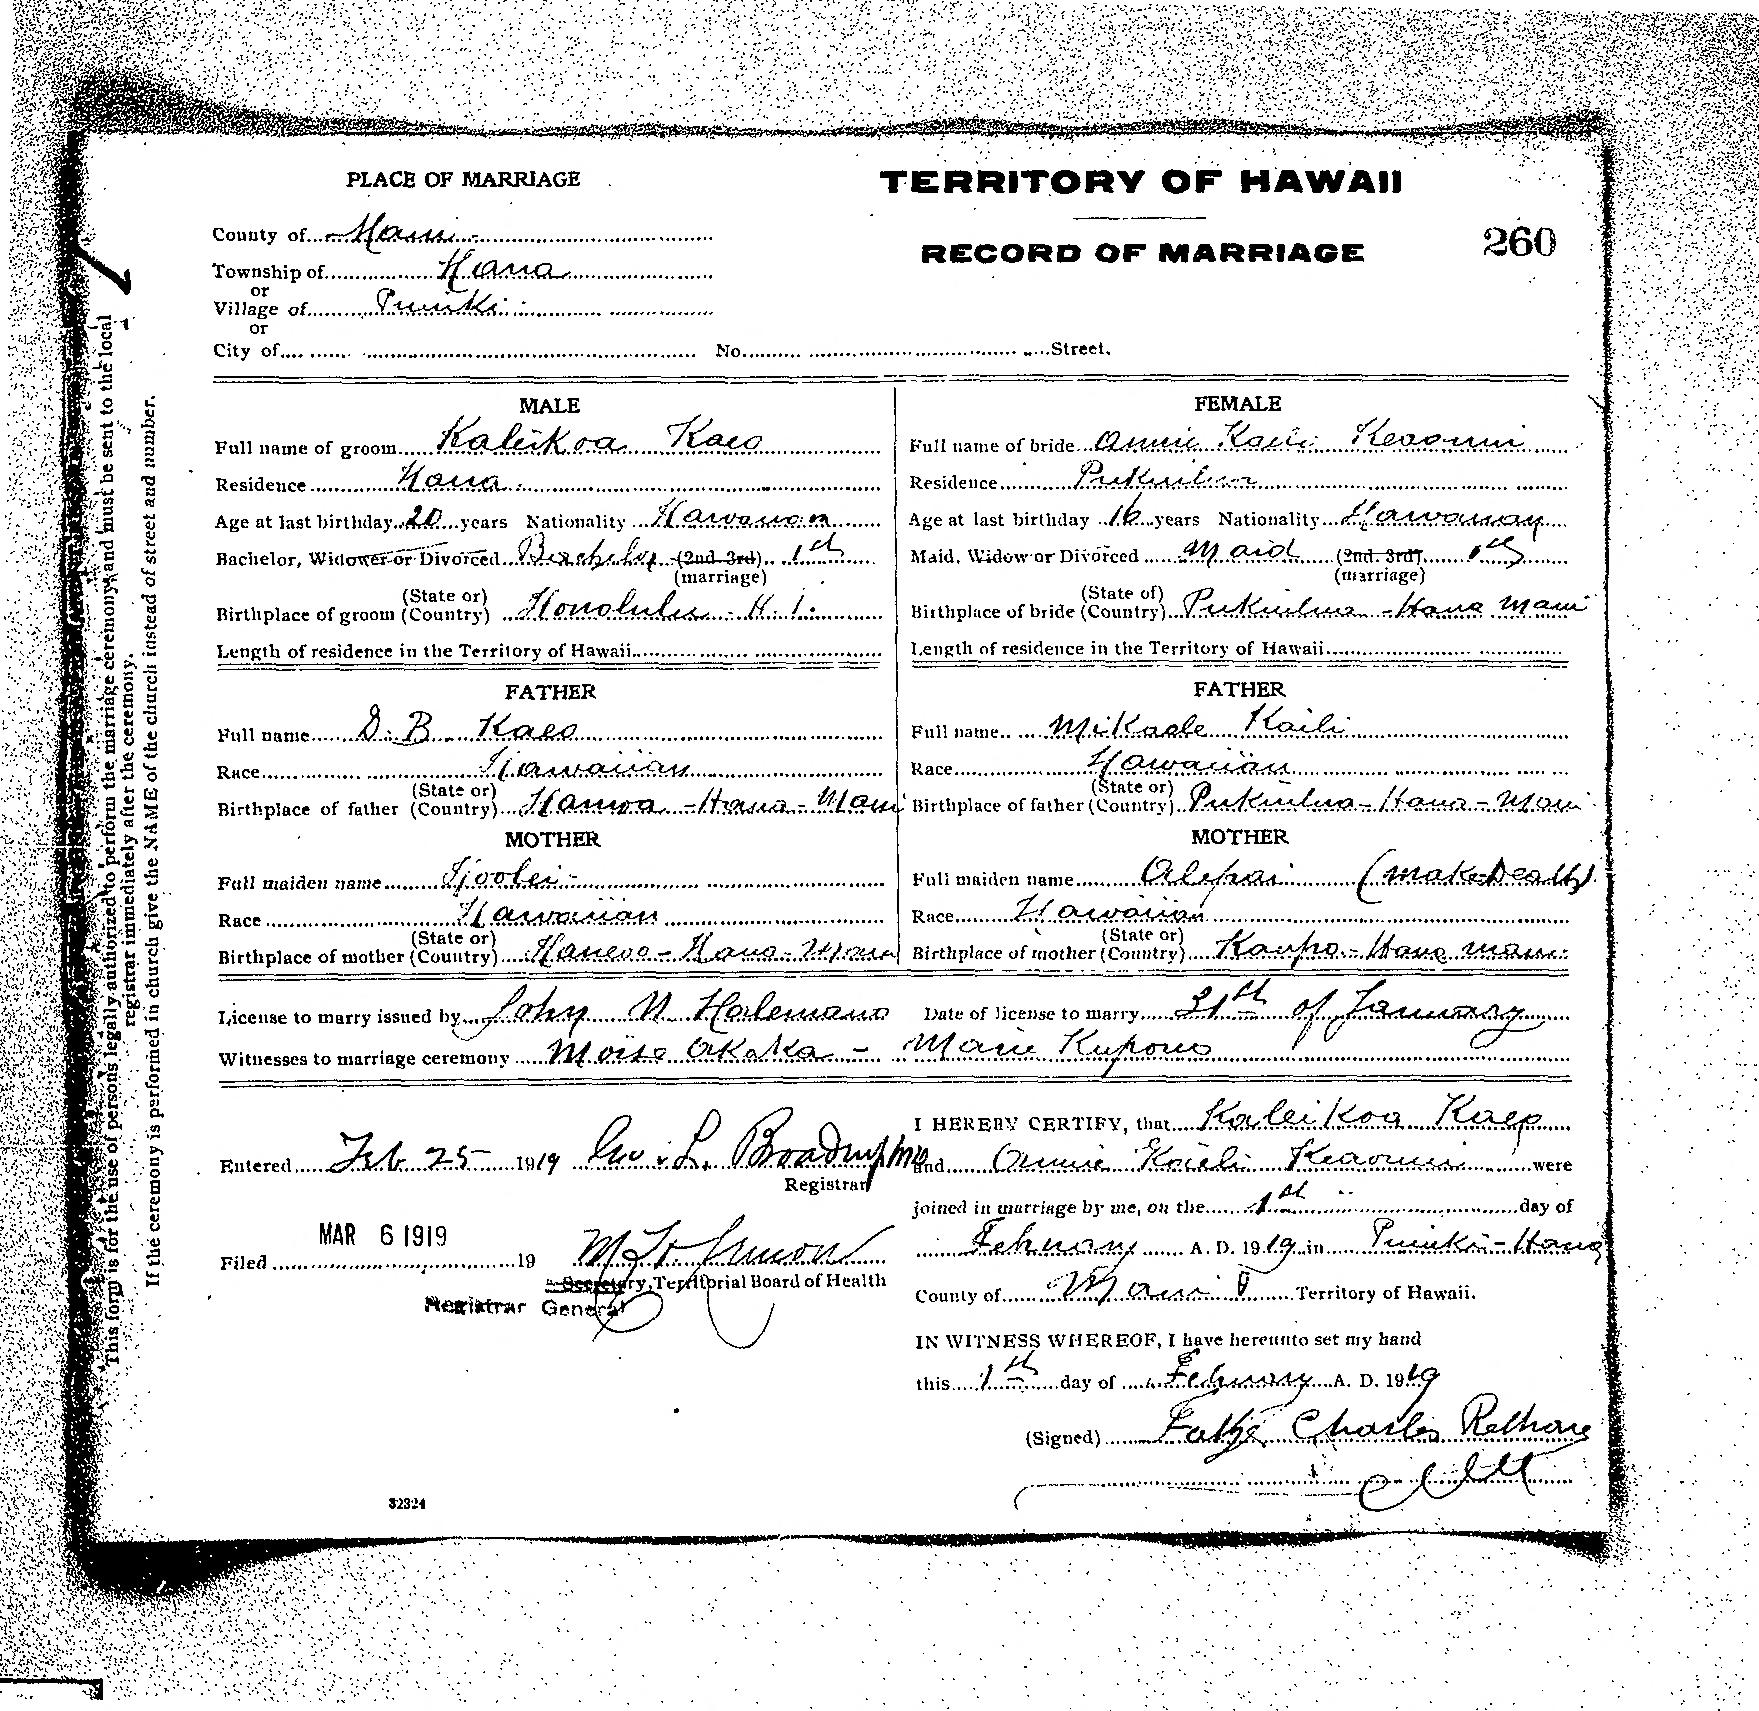 PLACE OF MARRIAGE
TERRITORY OF HAWAII
County of Maui
RECORD OF MARRIAGE
260
Township of Hana
or
Village of Puuiki
or
City of No. Street.
MALE
Full name of groom Kaleikoa Kaeo
Residence Hana
Age at last birthday 20 years Nationality Hawaiian
Bachelor, Widower or Divorced Bachelor (2nd 3rd) 1th
(marriage)
Birthplace of groom (State or) (Country) Honolulu - H. I.
Length of residence in the Territory of Hawaii
FATHER
Full name D. B. Kaeo
Race Hawaiian
Birthplace of father (State or) (Country) Hamoa - Hana - Maui
MOTHER
Full maiden name
Race Hawaiian
Birthplace of mother (State or) (Country) - Hana - Maui
FEMALE
Full name of bride Annie Kaili Keaouli
Residence Pukuilua
Age at last birthday 16 years Nationality Hawaiian
Maid, Widow or Divorced Maid (2nd. 3rd) 1th
(marriage)
Birthplace of bride (State of) (Country) Pukuilua - Hana Maui
Length of residence in the Territory of Hawaii
FATHER
Full name Mikaele Kaili
Race Hawaiian
Birthplace of father (State or) (Country) Pukuilua - Hana - Maui
MOTHER
Full maiden name Alepai (make Death)
Race Hawaiian
Birthplace of mother (State or) (Country) Kaupo - Hana Maui
License to marry issued by John N Halemano Date of license to marry 31th of January
Witnesses to marriage ceremony Moise Akaka - Marie Kupono
I HEREBY CERTIFY, that Kaleikoa Kaeo
and Annie Kaili were
joined in marriage by me, on the 1th day of
Februay A. D. 1919 in Puuiki - Hana
County of Maui T Territory of Hawaii.
IN WITNESS WHEREOF, I have hereunto set my hand
this 1th day of Februay A. D. 1919
(Signed) Father Charles
Entered Feb 25 1919 Geo. L. Broadrup MD
Registrar
Filed MAR 6 1919 19
Secretary, Territorial Board of Health
Registrar General
32324
This form is for the use of persons legally authorized to perform the marriage ceremony, and must be sent to the local
registrar immediately after the ceremony.
If the ceremony is performed in church give the NAME of the church instead of street and number.